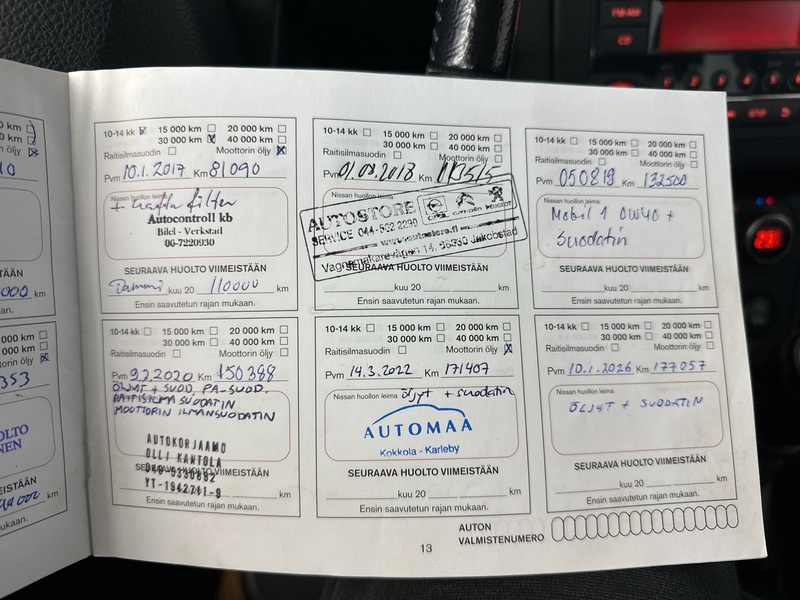 10-14 kk 15 000 km 20 000 km
30 000 km 40 000 km
Raitisilmasuodin Moottorin öljy
Pvm 10.1.2017 Km 81090
Nissan huollon leima
filter
Autocontroll kb
Bilel - Verkstad
06-7220930
SEURAAVA HUOLTO VIIMEISTÄÄN
Tammi kuu 20 110000 km
Ensin saavutetun rajan mukaan.
10-14 kk 15 000 km 20 000 km
30 000 km 40 000 km
Raitisilmasuodin Moottorin öljy
Pvm 01.08.2018 Km
Nissan huollon leima
AUTOSTORE
SERVICE 044-592 2290
www.autostore.fi
Vagnmakarevägen 14, Jakobstad
SEURAAVA HUOLTO VIIMEISTÄÄN
kuu 20 km
Ensin saavutetun rajan mukaan.
10-14 kk 15 000 km 20 000 km
30 000 km 40 000 km
Raitisilmasuodin Moottorin öljy
Pvm 050819 Km 132500
Nissan huollon leima
Mobil 1 0W40 +
Suodatin
SEURAAVA HUOLTO VIIMEISTÄÄN
kuu 20 km
Ensin saavutetun rajan mukaan.
10-14 kk 15 000 km 20 000 km
30 000 km 40 000 km
Raitisilmasuodin Moottorin öljy
Pvm 9.2.2020 Km 150388
ÖLJYT + SUOD. PA-SUOD.
RAITISILMASUODATIN
MOOTTORIN ILMANSUODATIN
AUTOKORJAAMO
OLLI KANTOLA
SEURAAVA HUOLTO VIIMEISTÄÄN
YT-1942711-9
km
Ensin saavutetun rajan mukaan.
10-14 kk 15 000 km 20 000 km
30 000 km 40 000 km
Raitisilmasuodin Moottorin öljy
Pvm 14.3.2022 Km 171407
Nissan huollon leima öljyt + suodatin
AUTOMAA
Kokkola - Karleby
SEURAAVA HUOLTO VIIMEISTÄÄN
kuu 20 km
Ensin saavutetun rajan mukaan.
10-14 kk 15 000 km 20 000 km
30 000 km 40 000 km
Raitisilmasuodin Moottorin öljy
Pvm 10.1.2026 Km 177057
Nissan huollon leima
ÖLJYT + SUODATIN
SEURAAVA HUOLTO VIIMEISTÄÄN
kuu 20 km
Ensin saavutetun rajan mukaan.
AUTON
VALMISTENUMERO
13